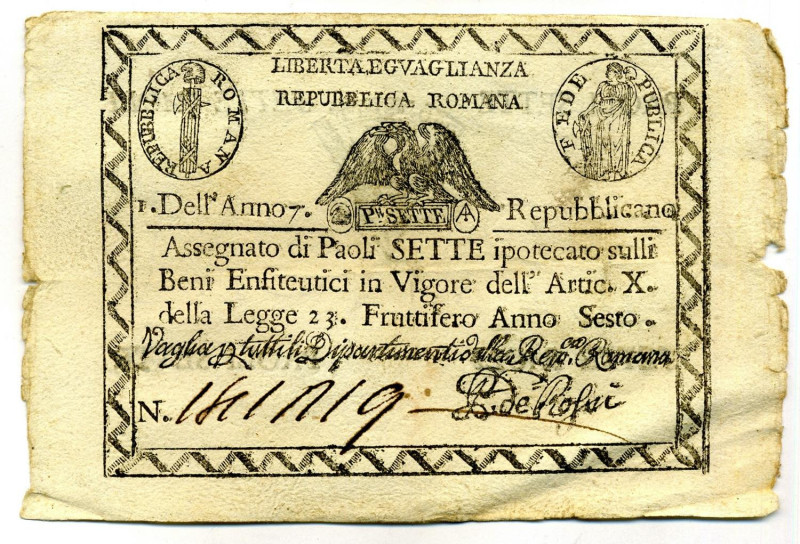 LIBERTA, EGVAGLIANZA
REPUBBLICA ROMANA
REPUBBLICA ROMANA
FEDE PUBLICA
1. Dell' Anno 7. Repubblicano
P.li SETTE A
Assegnato di Paoli SETTE ipotecato sulli
Beni Enfiteutici in Vigore dell' Artic. X.
della Legge 23. Fruttifero Anno Sesto.
Vaglia p tutti li Dipartimenti della Rep.ca Romana
N.
de Rossi